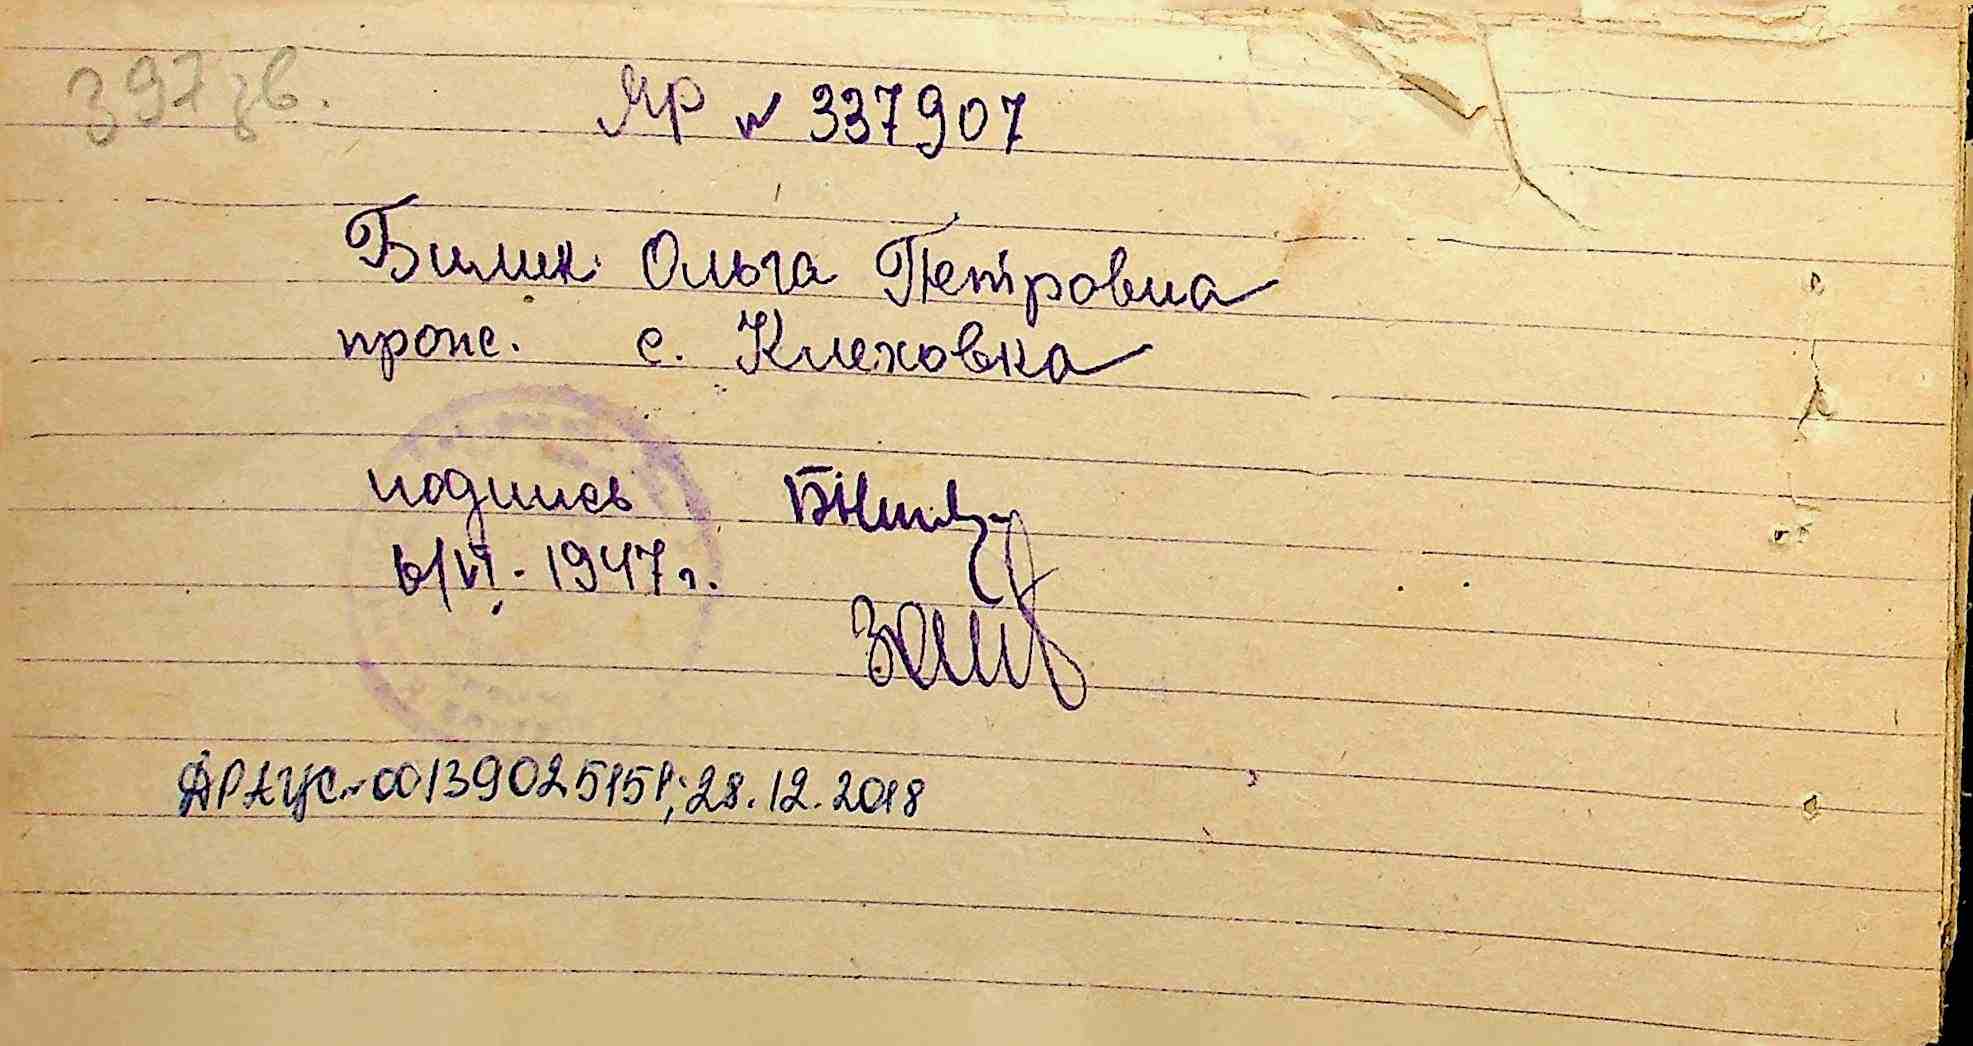 397зв.
ЯР № 337907
Билик Ольга Петровна
прож. с. Клеховка
подпись
6/VI. 1947 г.
ДРАЦС-00139025151; 28.12.2018